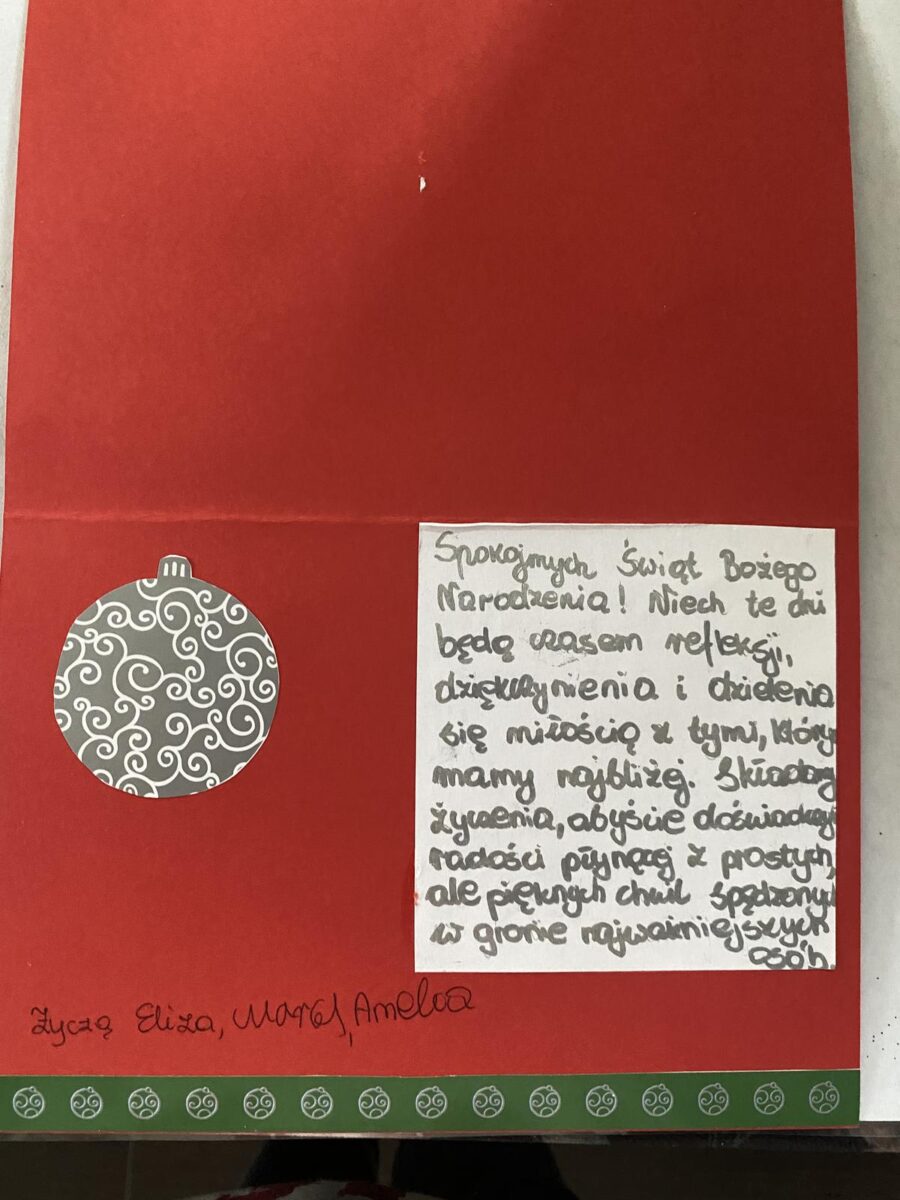 Spokojnych Świąt Bożego
Narodzenia! Niech te dni
będą czasem refleksji,
dziękczynienia i dzielenia
się miłością z tymi, który
mamy najbliżej. Składamy
życzenia, abyście doświadczyli
radości płynącej z prostych,
ale pięknych chwil spędzonych
w gronie najważniejszych
osób.
Życzą Eliza, Amelia